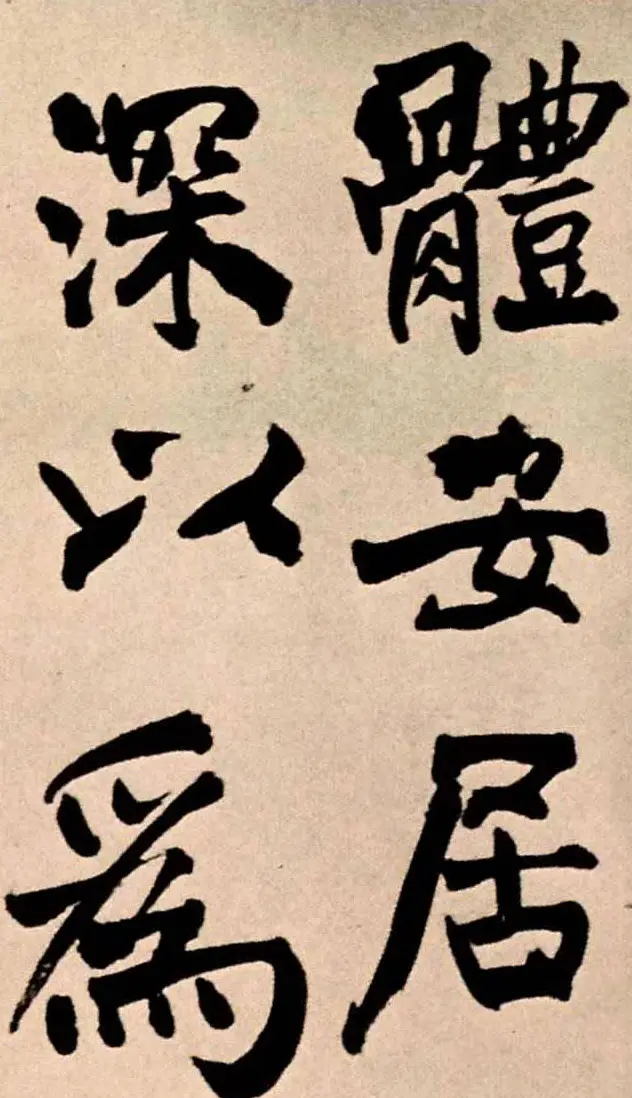 體安居
深以為